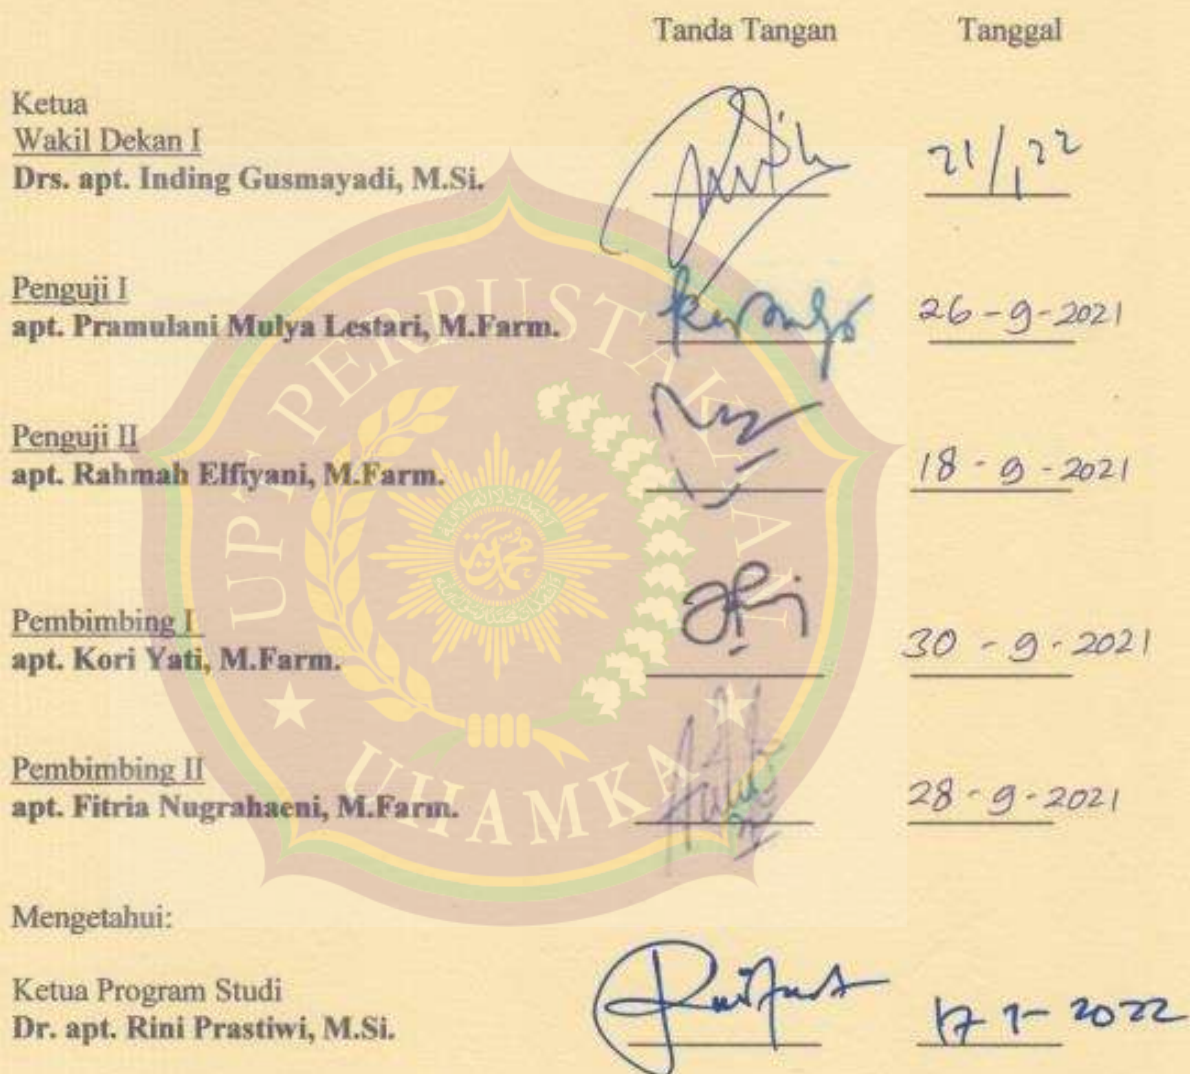 Tanda Tangan Tanggal
Ketua
Wakil Dekan I
Drs. apt. Inding Gusmayadi, M.Si. 21/1 22
Penguji I
apt. Pramulani Mulya Lestari, M.Farm. 26-9-2021
Penguji II
apt. Rahmah Elfiyani, M.Farm. 18-9-2021
Pembimbing I
apt. Kori Yati, M.Farm. 30-9-2021
Pembimbing II
apt. Fitria Nugrahaeni, M.Farm. 28-9-2021
Mengetahui:
Ketua Program Studi
Dr. apt. Rini Prastiwi, M.Si. 17-1-2022
UPT PERPUSTAKAAN
UHAMKA